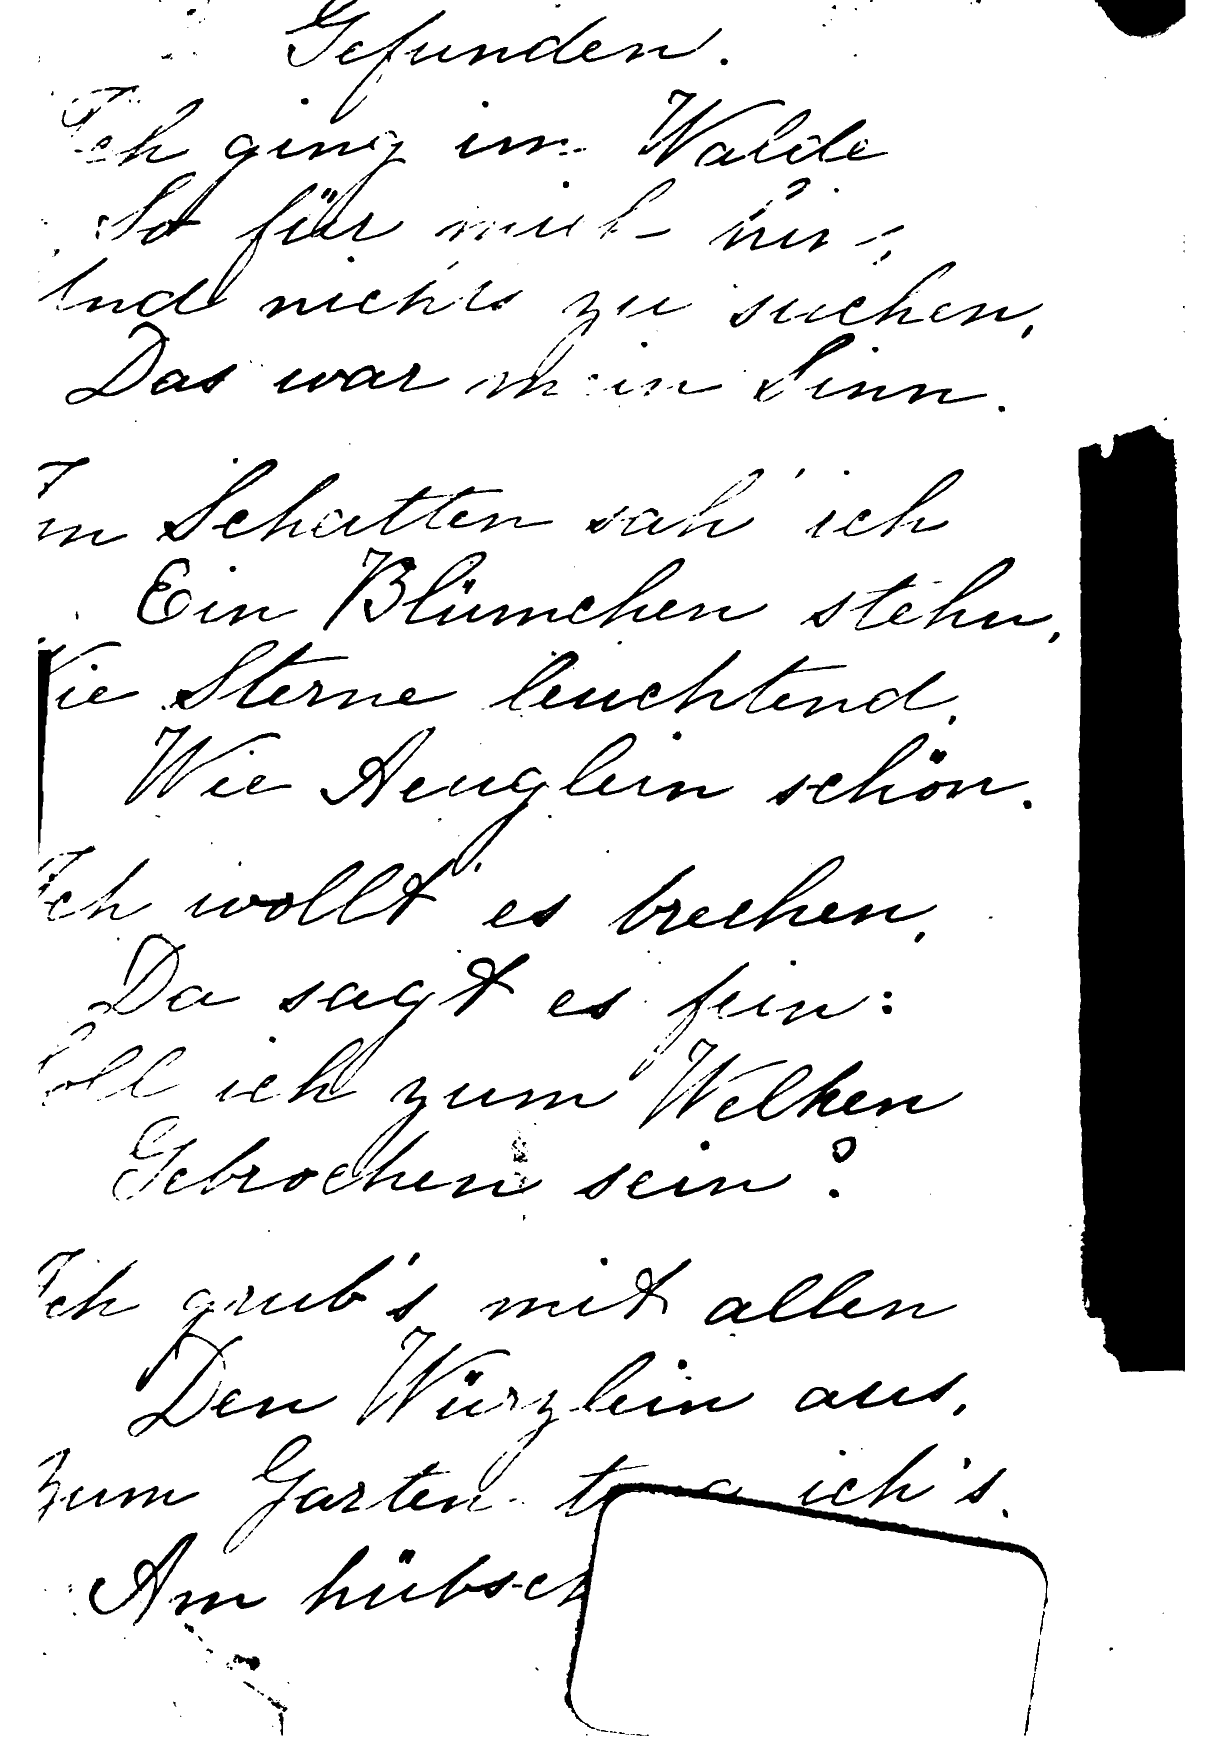 Gefunden.
Ich ging im Walde
So für mich hin,
Und nichts zu suchen,
Das war mein Sinn.
Im Schatten sah' ich
Ein Blümchen stehn,
Wie Sterne leuchtend,
Wie Aeuglein schön.
Ich wollt' es brechen,
Da sagt es fein:
Soll ich zum Welken
Gebrochen sein?
Ich grub's mit allen
Den Würzlein aus,
Zum Garten ich's,
Am